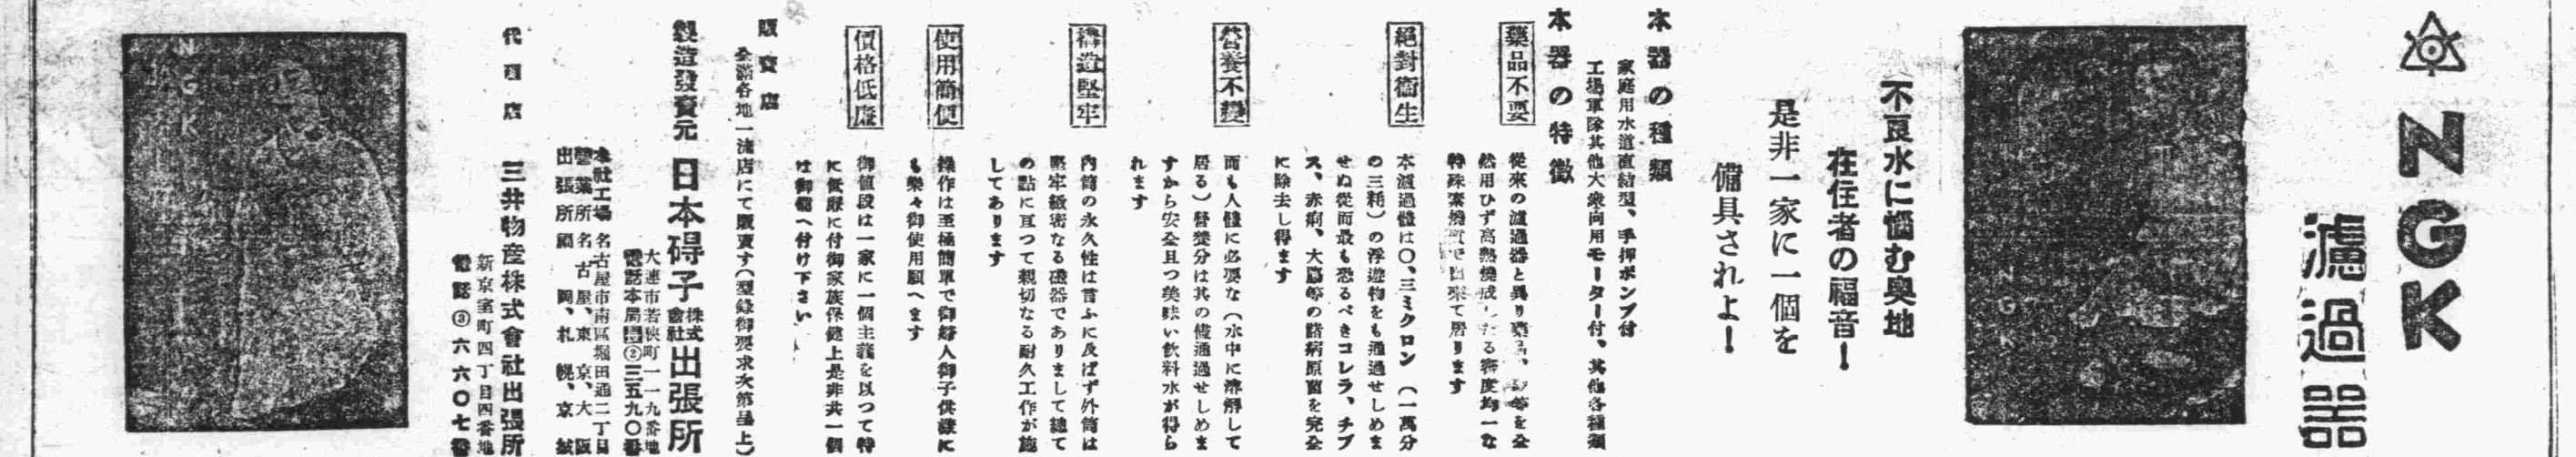 NGK
濾過器
NGK
不良水に悩む奥地
在住者の福音!
是非一家に一個を
備具されよ!
本器の種類
家庭用水道直結型、手押ポンプ付
工場軍隊其他大衆向用モーター付、其他各種類
本器の特徴
藥品不要
從來の濾過器と異り藥品、砂等を全
然用ひず高熱燒成したる密度均一な
特殊素燒質で出來て居ります
絕對衞生
本濾過體は〇、三ミクロン(一萬分
の三粍)の浮遊物をも通過せしめま
せぬ從而最も恐るべきコレラ、チブ
ス、赤痢、大膓等の諸病原菌を完全
に除去し得ます
營養不變
而も人體に必要な(水中に溶解して
居る)營養分は其の儘通過せしめま
すから安全且つ美味い飮料水が得ら
れます
構造堅牢
內筒の永久性は言ふに及ばず外筒は
堅牢緻密なる磁器でありまして總て
の點に亘つて親切なる耐久工作が施
してあります
使用簡便
操作は至極簡單で御婦人御子供樣に
も樂々御使用願へます
價格低廉
御値段は一家に一個主義を以つて特
に低廉に付御家族保健上是非共一個
は御備へ付け下さい
販賣店
全滿各地一流店にて販賣す(型錄御要求次第呈上)
製造發賣元 日本碍子株式會社出張所
大連市若狹町一一九番地
電話本局②三五九〇番
本社工場 名古屋市南區堀田通二丁目
營業所 名古屋、東京、大阪
出張所 福岡、札幌、京城
代理店 三井物産株式會社出張所
新京室町四丁目四番地
電話③六六〇七番
NGK